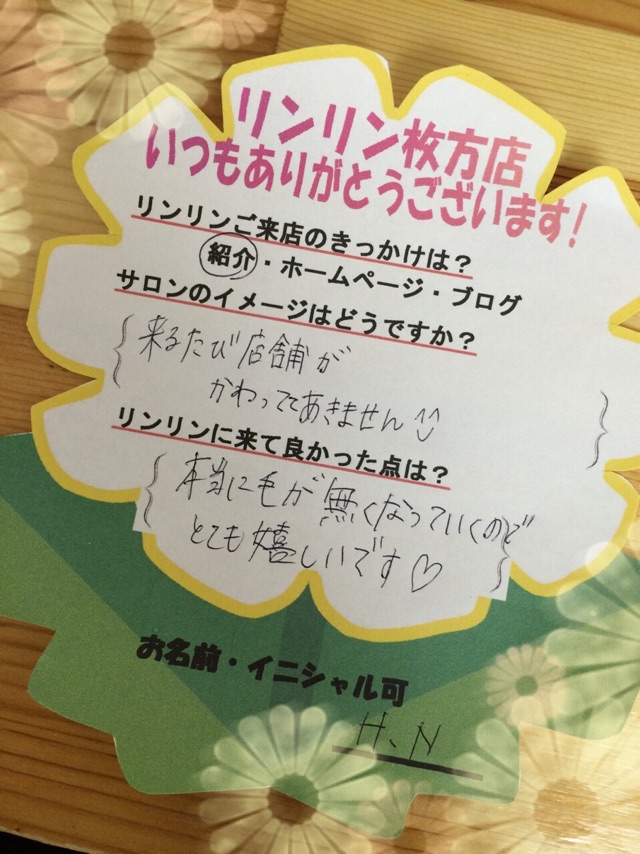 リンリン枚方店
いつもありがとうございます!
リンリンご来店のきっかけは？
紹介・ホームページ・ブログ
サロンのイメージはどうですか？
来るたび店舗が
かわっててあきません
リンリンに来て良かった点は？
本当に毛が無くなっていくので
とても嬉しいです♡
お名前・イニシャル可
H、N